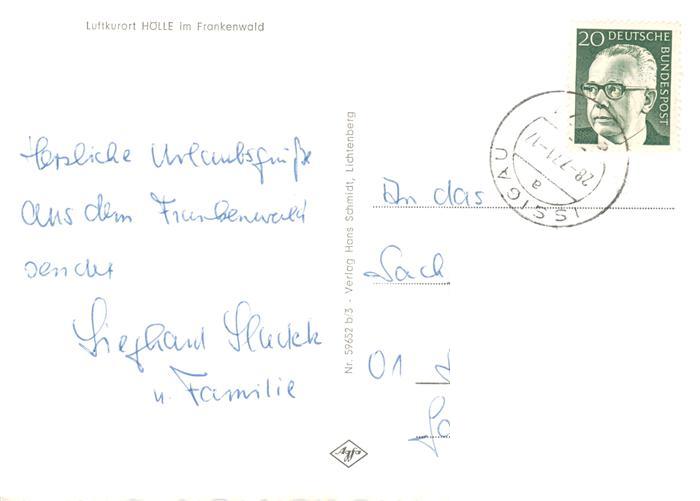 Luftkurort HÖLLE im Frankenwald
20 DEUTSCHE BUNDESPOST
ISSIGAU
a
28.-7.71-17
Herzliche Urlaubsgrüße
aus dem Frankenwald
sendet
Sieghard
u. Familie
Nr. 59652 b/3 - Verlag Hans Schmidt, Lichtenberg
Agfa
An das
Sach
01